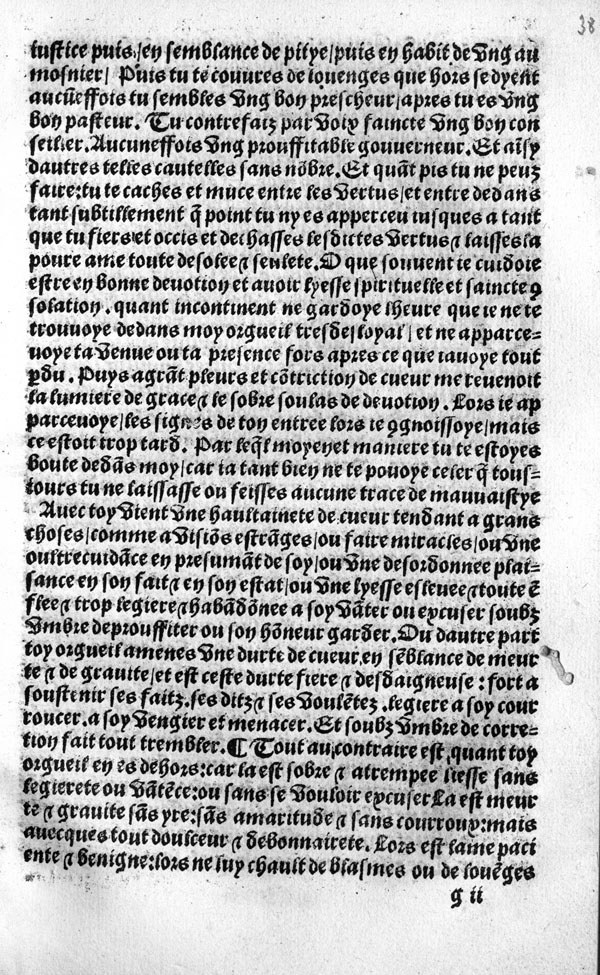 38
iustice puis/en semblance de pitye/puis en habit de vng au
mosnier/ Puis tu te couures de louenges que hors se dyent
aucũeffois tu sembles vng bon prescheur/apres tu es vng
bon pasteur. Tu contrefaiz par voix faincte vng bon con
seillier. Aucuneffois vng prouffitable gouuerneur. Et aĩsy
dautres telles cautelles sans nõbre. Et quãt pis tu ne peuz
faire:tu te caches et muce entre les vertus/et entre dedans
tant subtillement q̃ point tu ny es apperceu iusques a tant
que tu fiers/et occis et dechasses lesdictes vertus ⁊ laisses la
poure ame toute desolee ⁊ seulete. O que souuent ie cuidoie
estre en bonne deuotion et auoir lyesse spirituelle et saincte ꝯ
solation. quant incontinent ne gardoye lheure que ie ne te
trouuoye dedans moy orgueil tresdesloyal/ et ne apparce-
uoye ta venue ou ta presence fors apres ce que iauoye tout
ꝑdu. Puys agrãt pleurs et cõtriction de cueur me reuenoit
la lumiere de grace ⁊ le sobre soulas de deuotion. Lors ie ap
parceuoye/les signes de toy entree lors ie ꝯgnoissoye/mais
ce estoit trop tard. Par leq̃l moyen et maniere tu te estoyes
boute dedãs moy/car ia tant bien ne te pouoye celer q̃ tous-
iours tu ne laissasse ou feisses aucune trace de mauuaistye
Auec toy vient vne haultainete de cueur tendant a grans
choses/comme a visiõs estrãges/ou faire miracles/ou vne
oultrecuidãce en presumãt de soy/ou vne desordonnee plai-
sance en son fait ⁊ en son estat/ou vne lyesse esleuee ⁊ toute ẽ
flee ⁊ trop legiere ⁊ habãdõnee a soy vãter ou excuser soubz
vmbre de prouffiter ou son hõneur garder. Ou dautre part
toy orgueil amenes vne durte de cueur en sẽblance de meur
te ⁊ de grauite/et est ceste durte fiere ⁊ desdaigneuse : fort a
soustenir ses faitz.ses ditz ⁊ ses voulẽtez.legiere a soy cour
roucer.a soy vengier et menacer. Et soubz vmbre de corre-
tion fait tout trembler. ¶ Tout au contraire est quant toy
orgueil en es dehors:car la est sobre ⁊ atrempee liesse sans
legierete ou vãtẽce:ou sans se vouloir excuser La est meur
te ⁊ grauite sãs yre:sãs amaritude ⁊ sans courroux:mais
auecques tout doulceur ⁊ debonnairete. Lors est lame paci
ente ⁊ benigne:lors ne luy chault de blasmes ou de louẽges
g ii